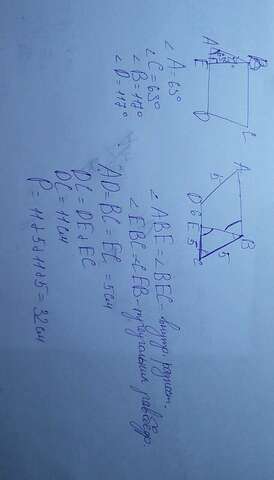 A B
E
D C
∠ A = 63°
∠ C = 63°
∠ B = 117°
∠ D = 117°
A B
5
D 6 E 5 C
5
∠ ABE = ∠ BEC - внутр. накрест.
∠ EBC = ∠ CEB - треугольник равнобед.
AD = BC = EC = 5 см
DC = DE + EC
DC = 11 см
P = 11 + 5 + 11 + 5 = 32 см